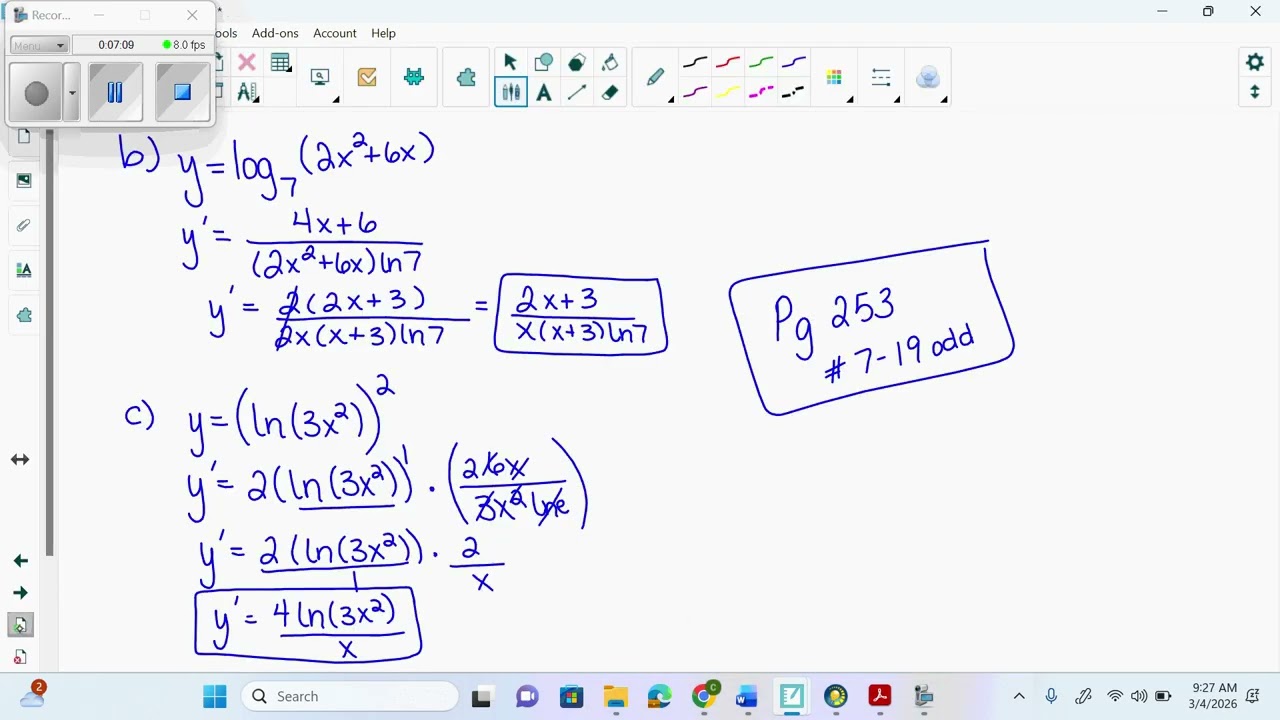 Recor...
Menu
0:07:09
8.0 fps
ools Add-ons Account Help
b) y = log₇(2x²+6x)
y' = 4x+6 / (2x²+6x)ln7
y' = 2(2x+3) / 2x(x+3)ln7 = 2x+3 / x(x+3)ln7
Pg 253
# 7-19 odd
c) y = (ln(3x²))²
y' = 2(ln(3x²))¹ · (2 6x / 3x² lne)
y' = 2(ln(3x²)) / 1 · 2 / x
y' = 4ln(3x²) / x
2
Search
9:27 AM
3/4/2026